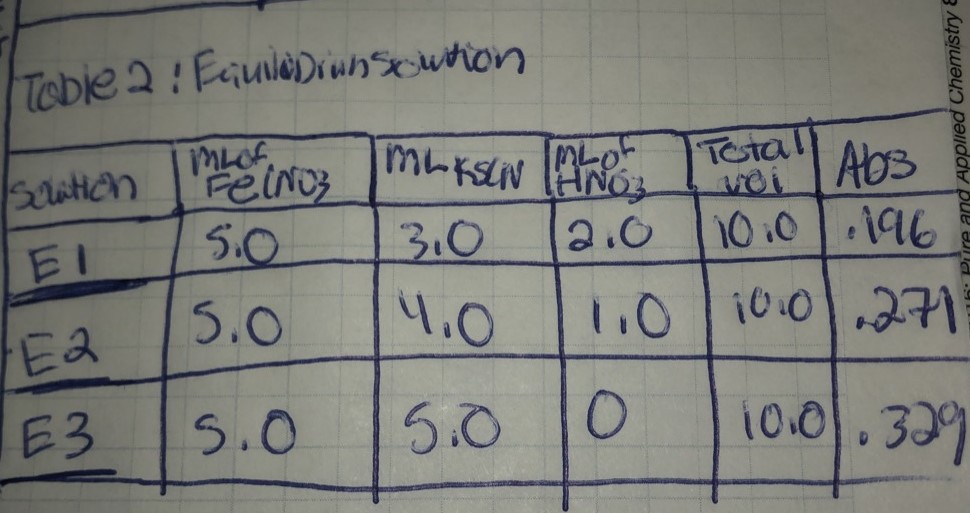 Table 2: Equilibrium solution
solution
mL of Fe(NO3
mL KSCN
mL of HNO3
Total vol
Abs
E1 5.0 3.0 2.0 10.0 .196
E2 5.0 4.0 1.0 10.0 .271
E3 5.0 5.0 0 10.0 .329
Pure and Applied Chemistry